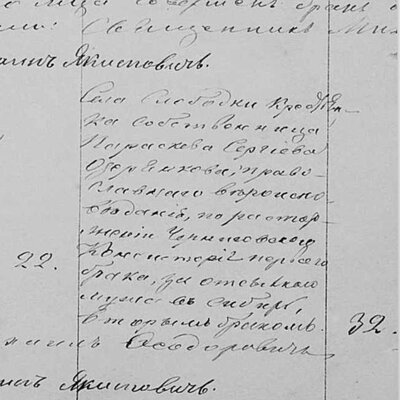 лица совершенъ бракъ
Священникъ Ми
Якимовичъ.
Села Слободки крестьян-
ка собственница
Параскова Сергіева
православ-
славнаго вѣроиспо-
вѣданій, по растор-
женіи Черниговскою
Консисторіею перваго
брака, за отсылкою
мужа въ Сибирь,
вторымъ бракомъ.
22.
32.
Ѳеодоровичъ
Якимовичъ.